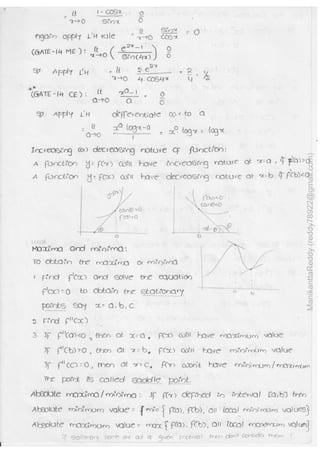 = lt 1-cosx 0
x→0 sinx 0
again apply L'H rule = lt sinx = 0
x→0 cosx
(GATE-14 ME): lt ( e^2x - 1 ) 0
x→0 sin(4x) 0
sol Apply L'H = lt 2.e^2x = 2 = 1/2
x→0 4.cos4x 4
(GATE-14 CE): lt x^a - 1 = 0
a→0 a 0
sol Apply L'H differentiate w.r.to a
= lt x^a logx - 0 = x^0 logx = logx
a→0 1
Increasing (or) decreasing nature of function:
A function y = f(x) will have increasing nature at x=a, if f'(a)>0
A function y = f(x) will have decreasing nature at x=b, if f'(b)<0
Maxima and minima:
To obtain the maxima or minima
1. Find f'(x) and solve the equation
f'(x)=0 to obtain the stationary
points say x = a, b, c
2. Find f''(x)
3. If f''(a)<0, then at x=a, f(x) will have maximum value
If f''(b)>0, then at x=b, f(x) will have minimum value
If f''(c)=0, then at x=c, f(x) won't have minimum/maximum
The point is called saddle point
Absolute maxima/minima: If f(x) defined in interval [a,b] then
Absolute minimum value = min { f(a), f(b), all local minimum values }
Absolute maximum value = max { f(a), f(b), all local maximum values }
If stationary points are out of given interval then don't consider them